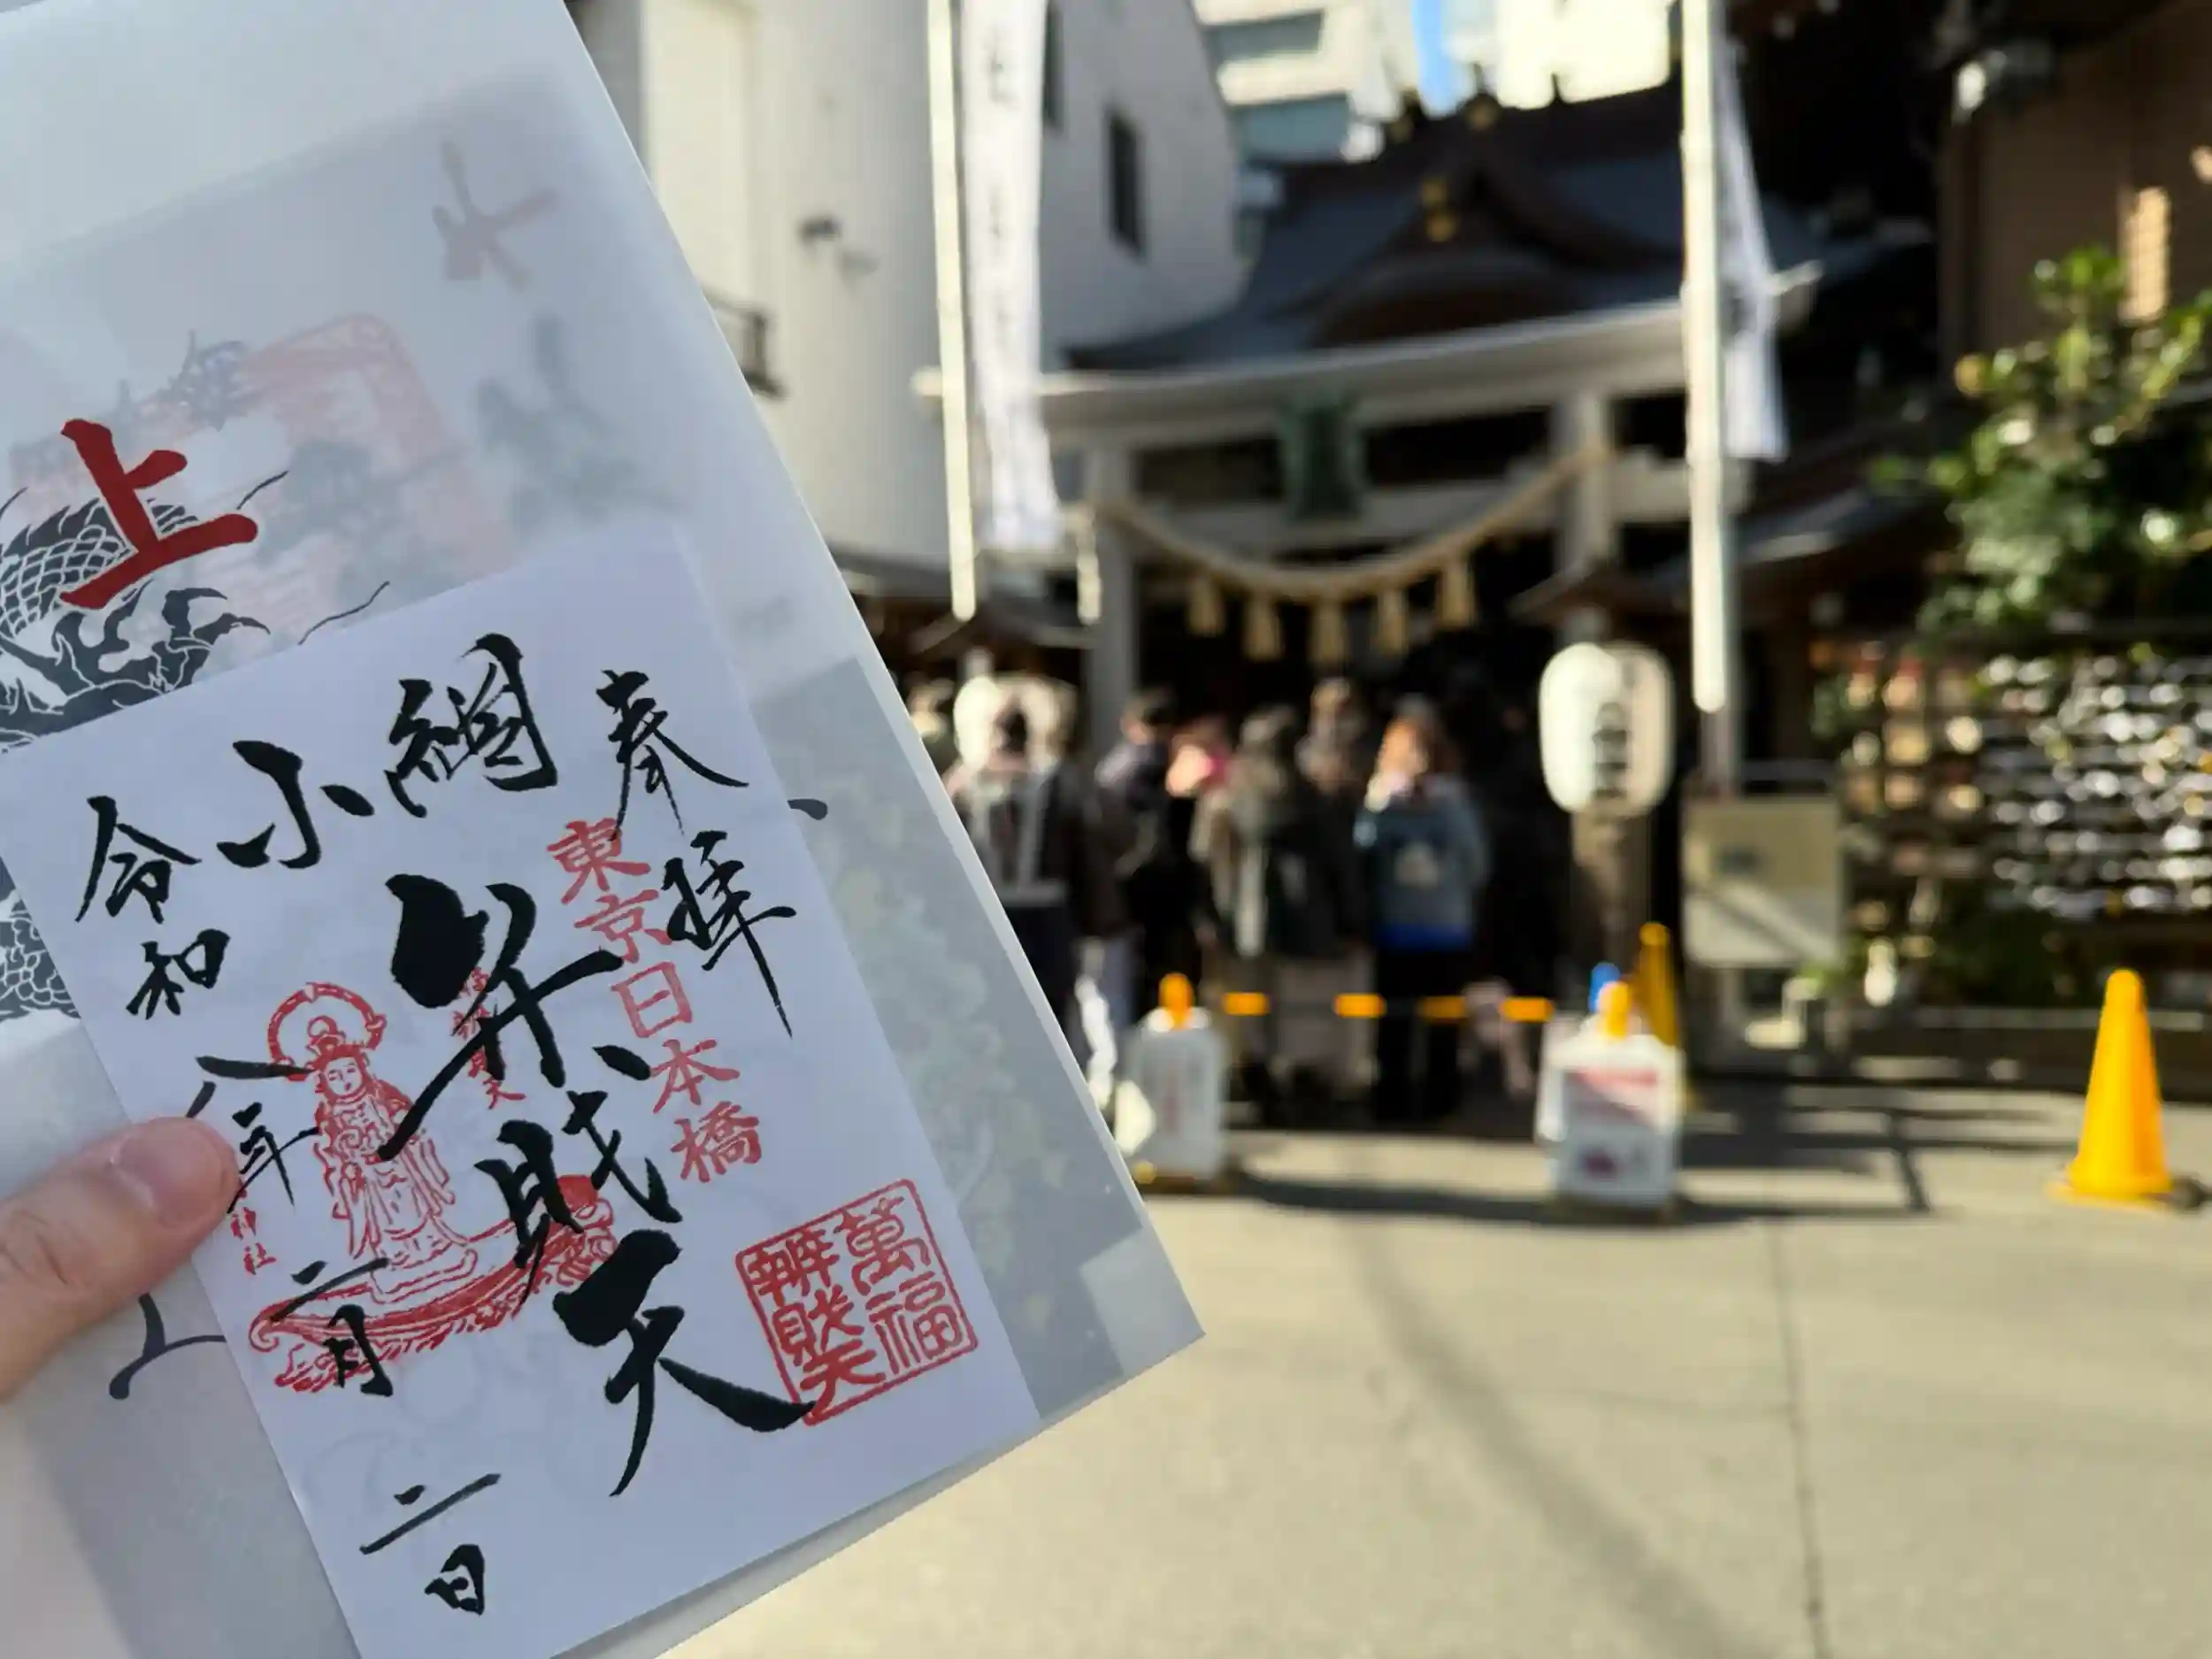 上
奉拝
東京日本橋
小網
弁財天
萬福
辨財天
令和八年二月二日
神社